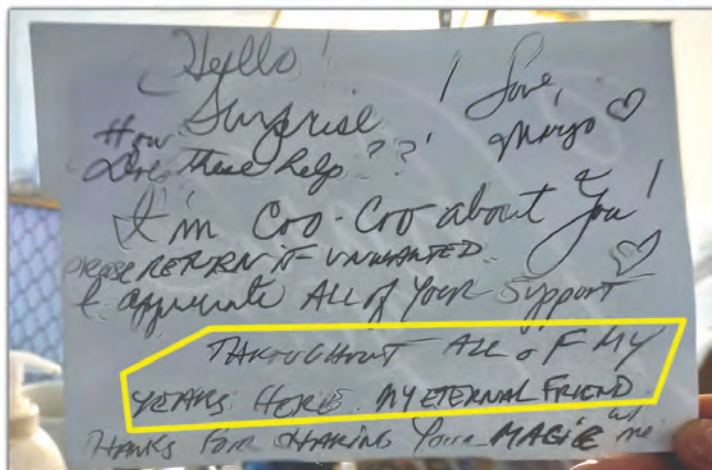 Hello!
Surprise! Love,
How Margo ♡
Does these help??
I'm Coo-Coo about You!
please RETURN IF UNWANTED.
I appreciate ALL of Your Support ♡
THROUGHOUT ALL OF MY
YEARS HERE. MY ETERNAL FRIEND.
THANKS FOR SHARING Your MAGIC w/ me